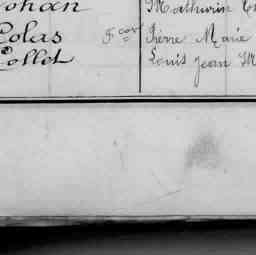 ohan Mathurin
Colas F cov Pierre Marie
Collet Louis Jean M